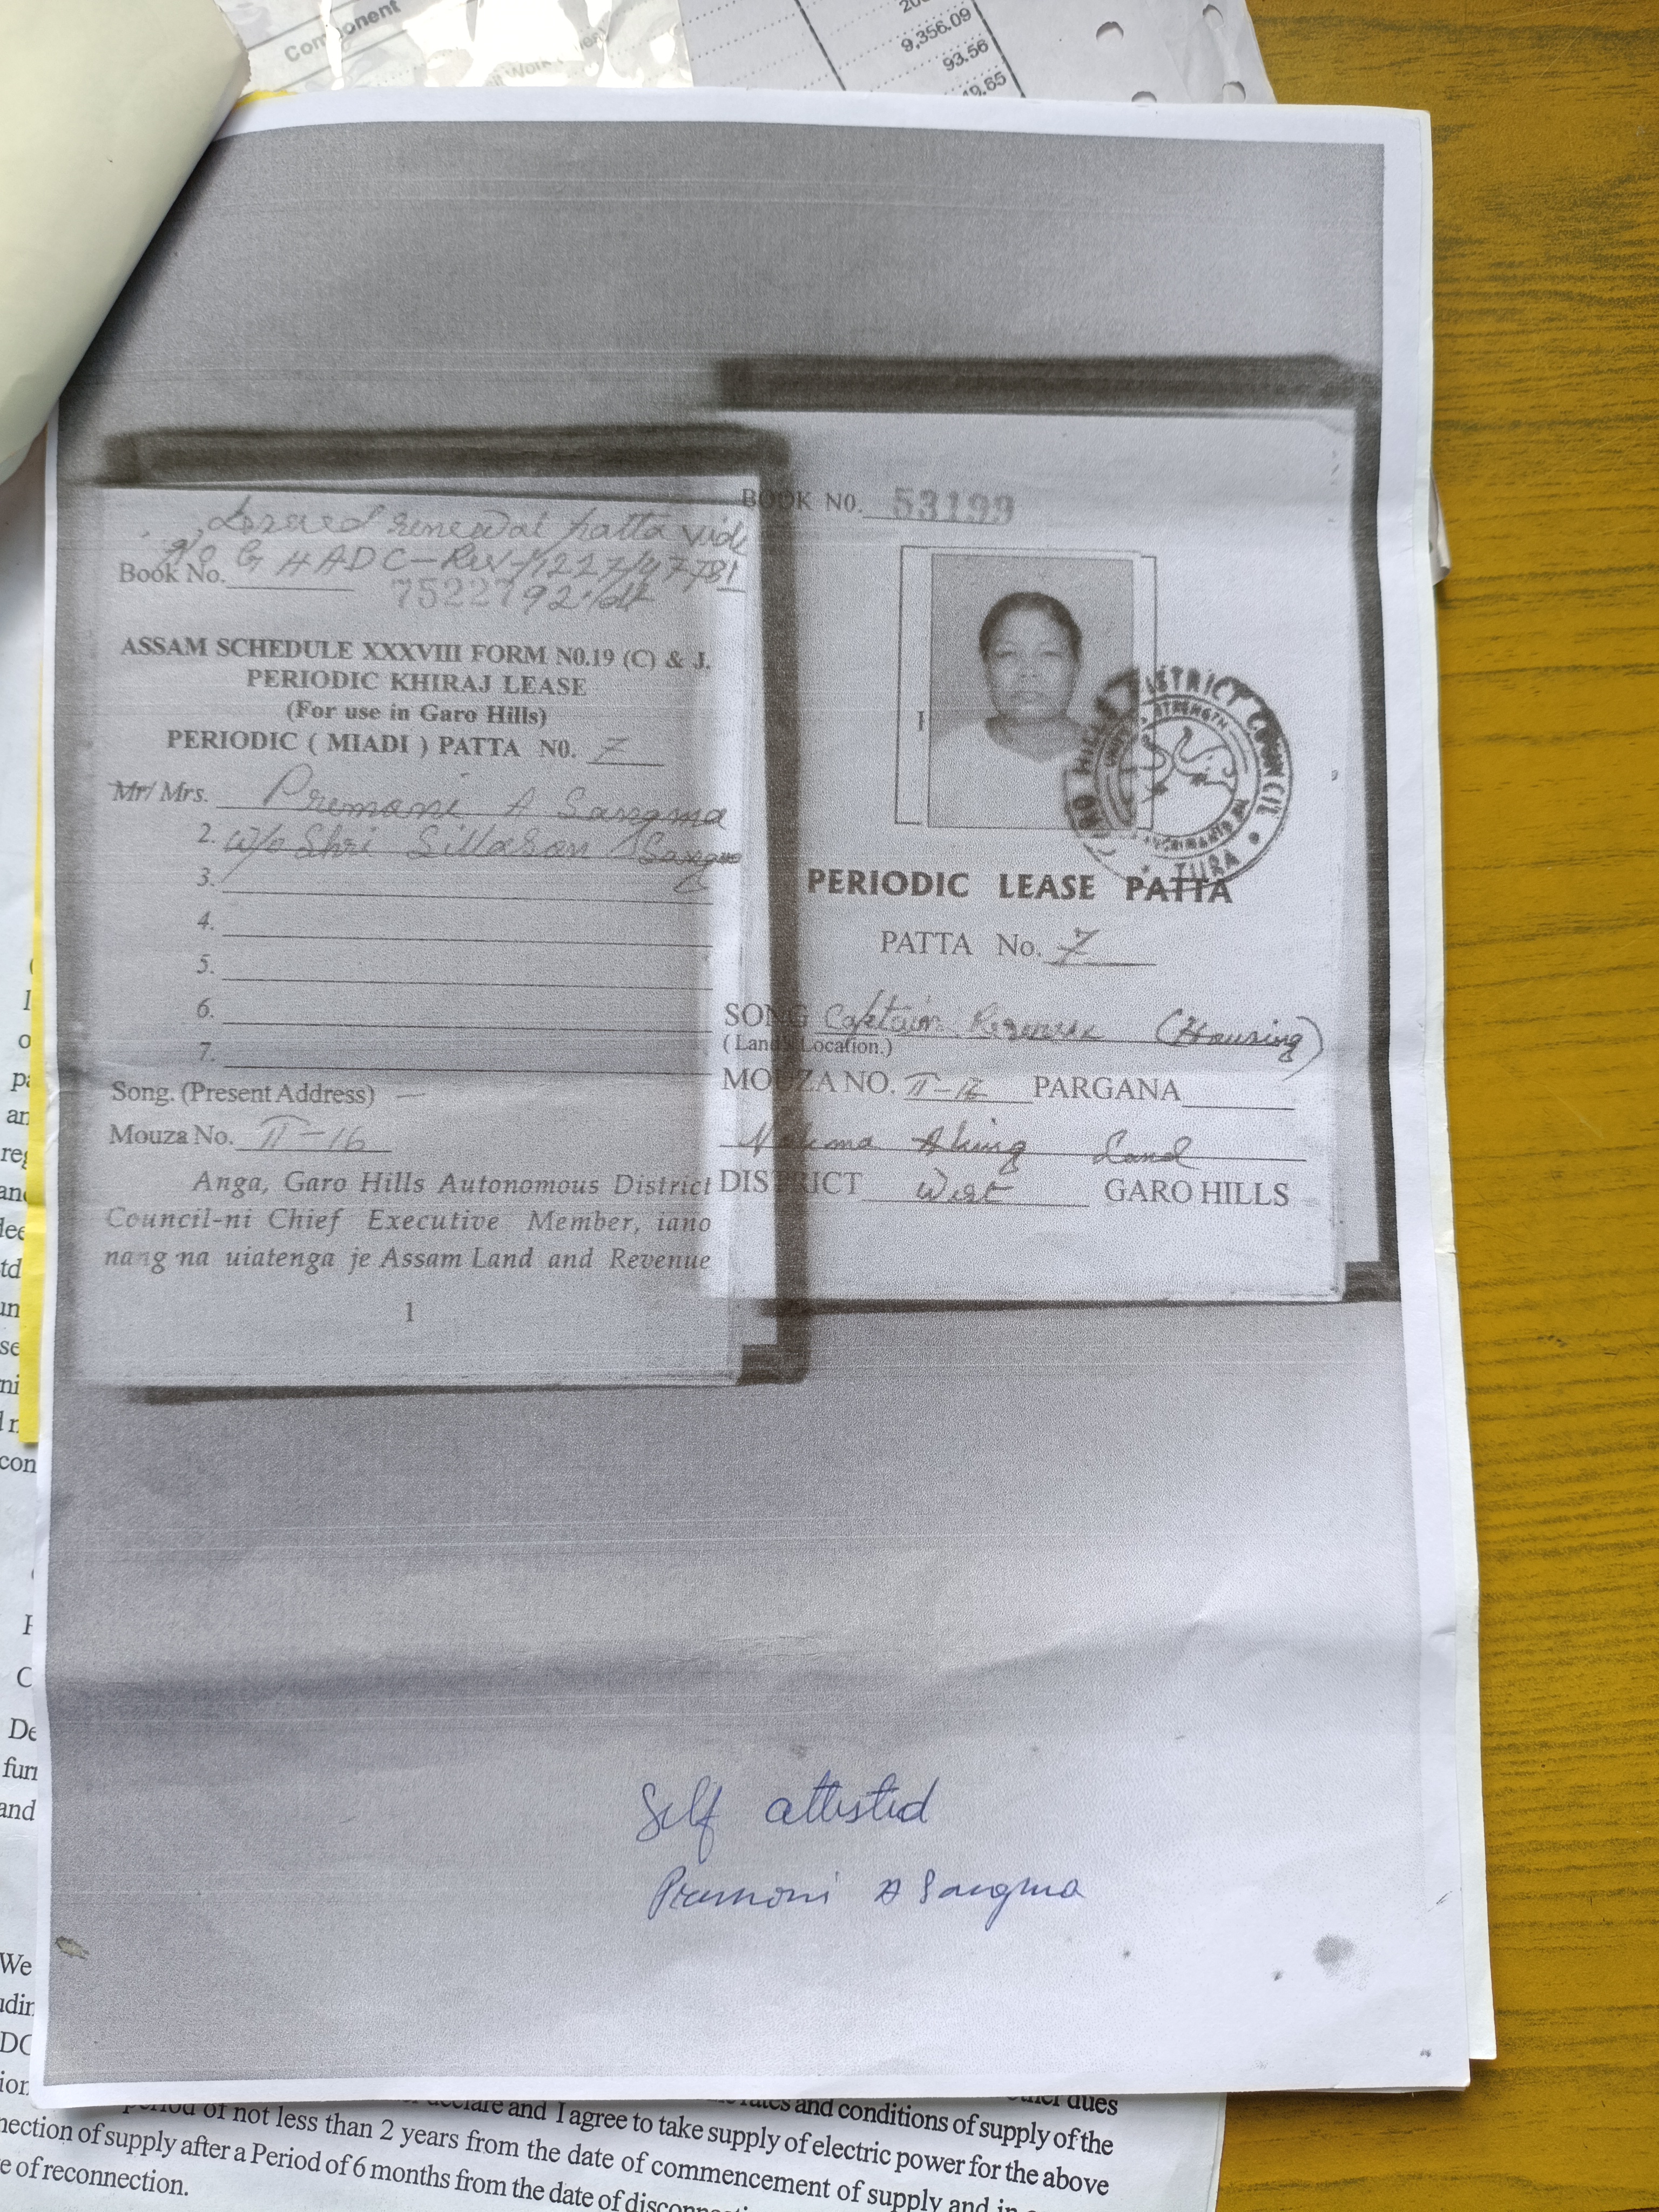 Component
9,356.09
93.56
Issued renewal patta vide
No GHADC-Rev/1227/
Book No.
75227
ASSAM SCHEDULE XXXVIII FORM N0.19 (C) & J.
PERIODIC KHIRAJ LEASE
(For use in Garo Hills)
PERIODIC ( MIADI ) PATTA N0. 7
Mr/ Mrs. Premani A Sangma
2. w/o Shri Sillason Sangma
3.
4.
5.
6.
7.
Song. (Present Address) —
Mouza No. II-16
Anga, Garo Hills Autonomous District
Council-ni Chief Executive Member, iano
nang na uiatenga je Assam Land and Revenue
1
BOOK N0. 53199
GARO HILLS DISTRICT COUNCIL
TURA
PERIODIC LEASE PATTA
PATTA No. 7
SONG Captain (Housing)
( Land's Location.)
MOUZA NO. II-16 PARGANA
Nokma Aking Land
DISTRICT West GARO HILLS
Self attested
Premoni A Sangma
We
and
con
dues
declare and I agree to take supply of electric power for the above
rates and conditions of supply of the
period of not less than 2 years from the date of commencement of supply and in
nection of supply after a Period of 6 months from the date of
e of reconnection.